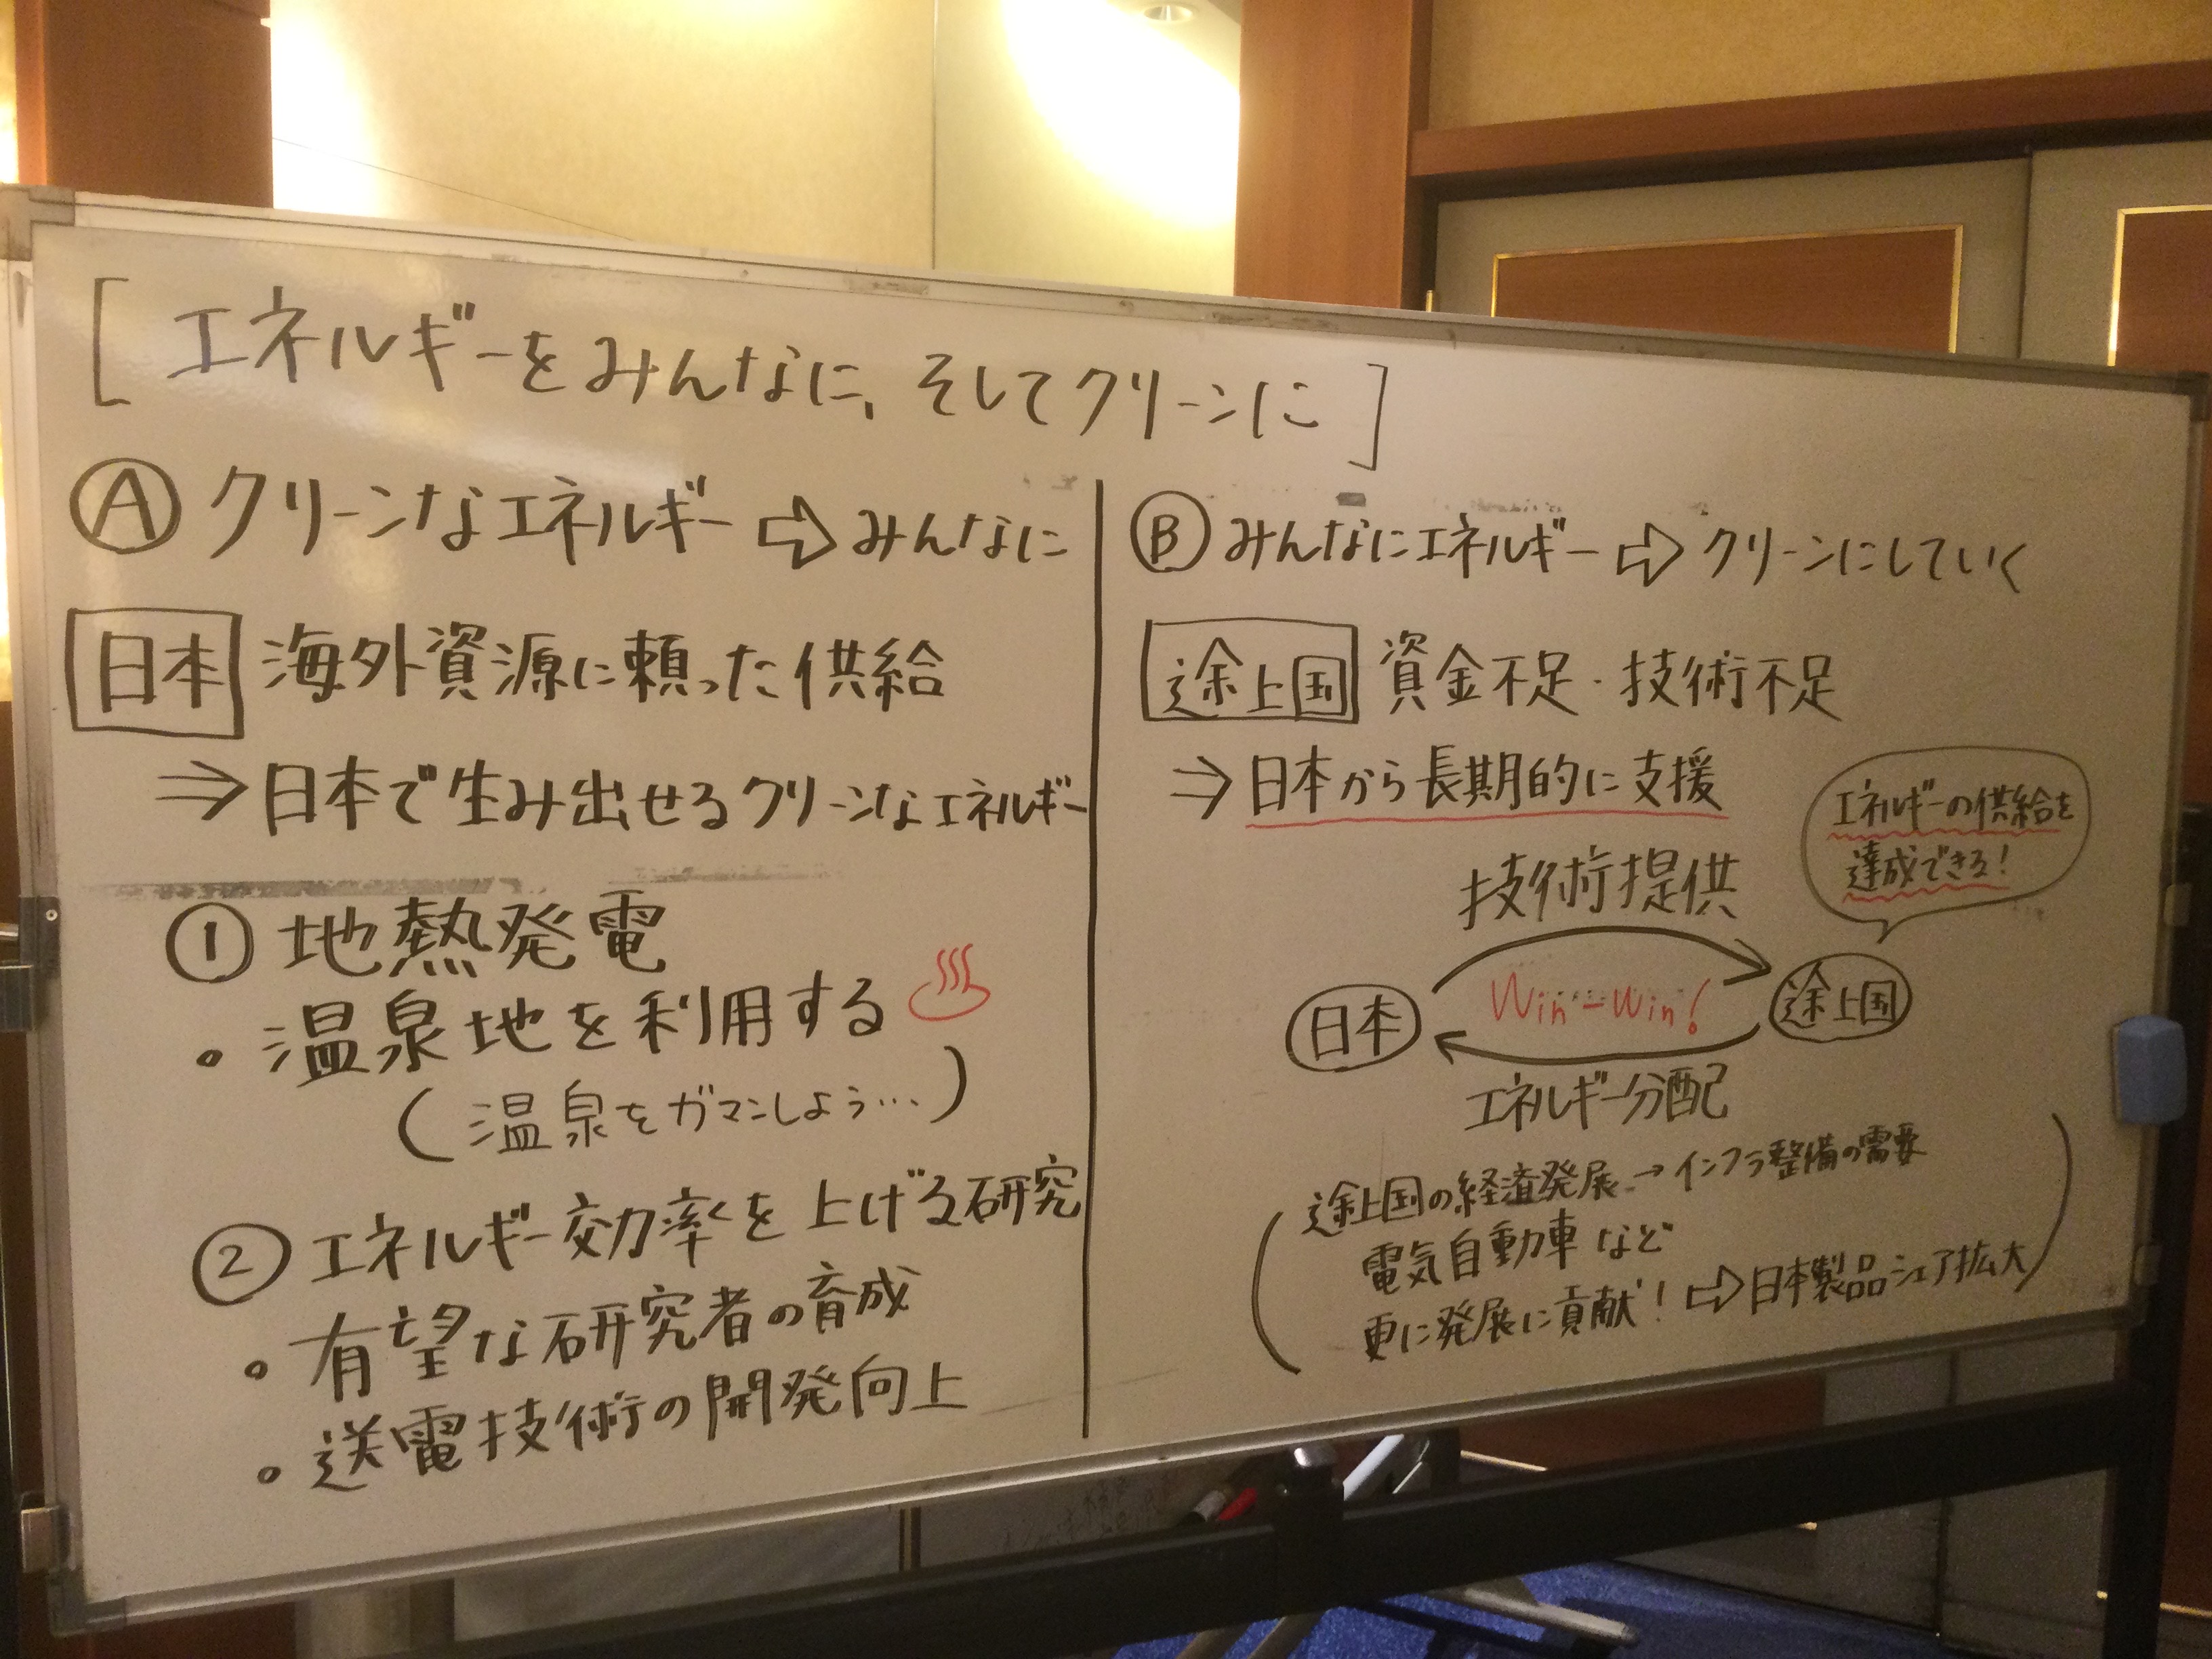 [エネルギーをみんなに、そしてクリーンに]
Ⓐ クリーンなエネルギー ⇨ みんなに
日本 海外資源に頼った供給
⇒ 日本で生み出せるクリーンなエネルギー
① 地熱発電
・温泉地を利用する ♨
(温泉をガマンしよう…)
② エネルギー効率を上げる研究
・有望な研究者の育成
・送電技術の開発向上
Ⓑ みんなにエネルギー ⇨ クリーンにしていく
途上国 資金不足・技術不足
⇒ 日本から長期的に支援
エネルギーの供給を
達成できる!
技術提供
日本 Win-Win! 途上国
エネルギー分配
(途上国の経済発展 → インフラ整備の需要
電気自動車など
更に発展に貢献! ⇨ 日本製品シェア拡大)